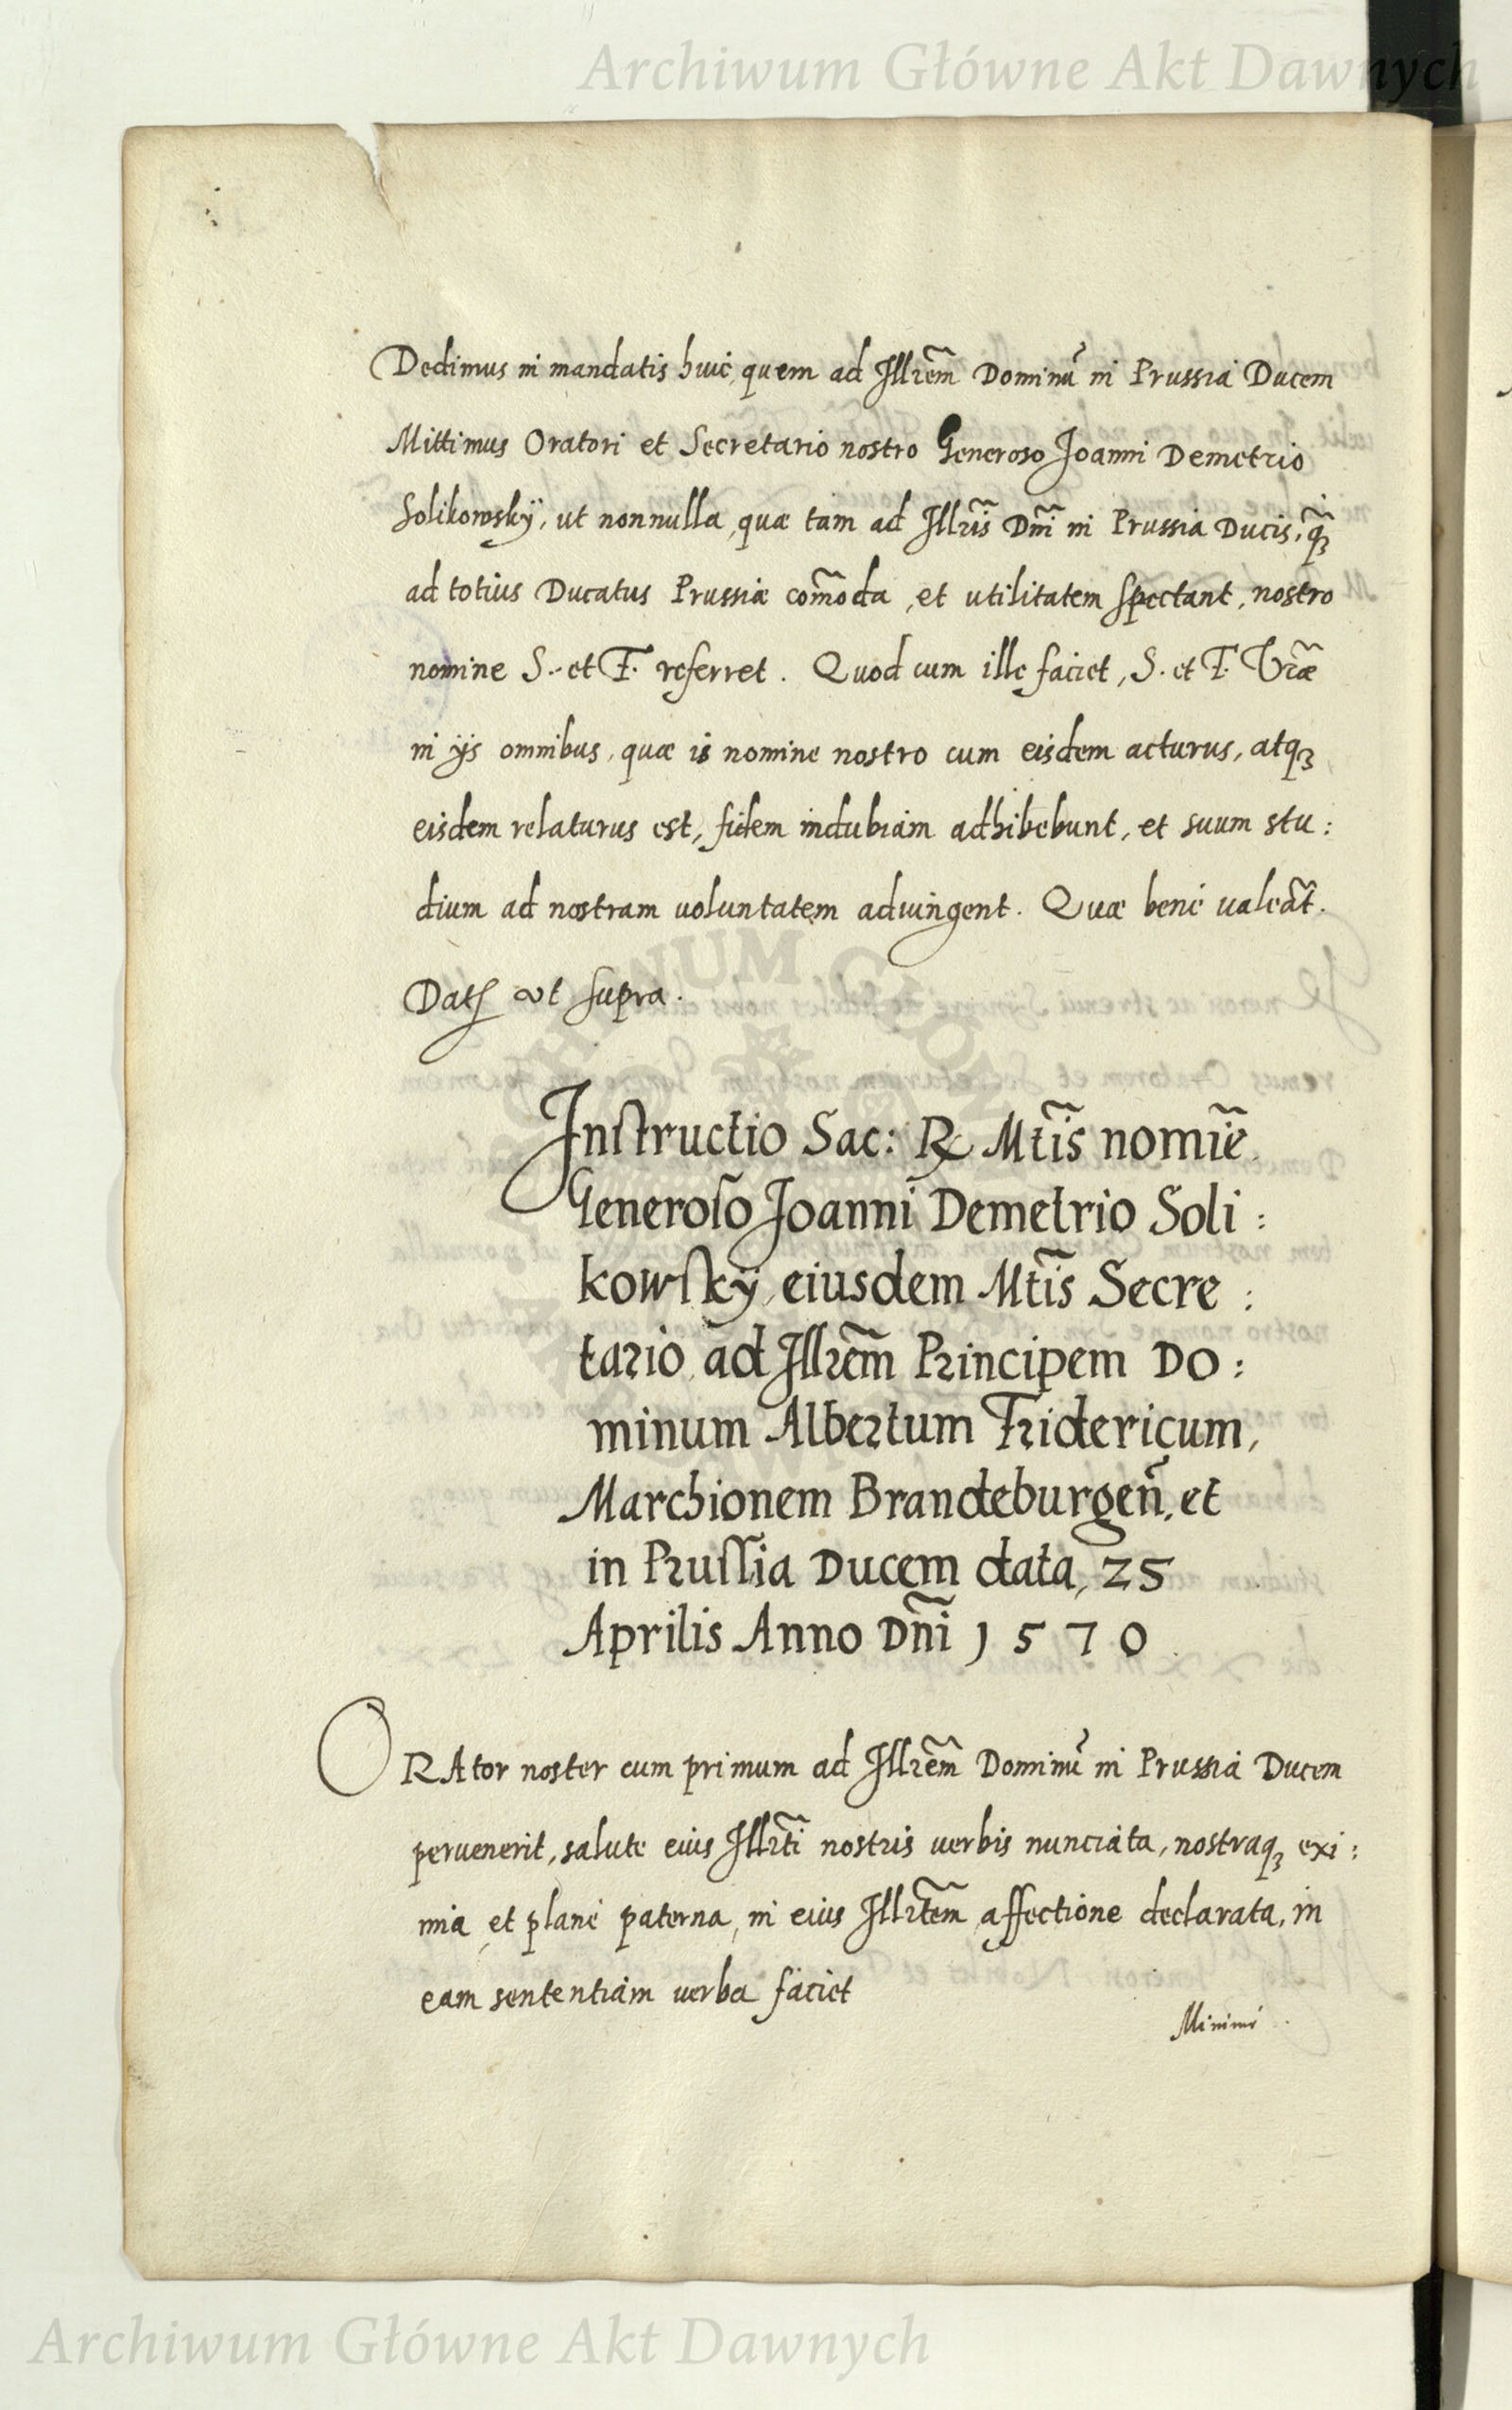 Archiwum Główne Akt Dawnych
Dedimus in mandatis huic, quem ad Illrem̃ Dominũ in Prussia Ducem
Mittimus Oratori et Secretario nostro Generoso Joanni Demetrio
Solikowskÿ, ut nonnulla, quæ tam ad Illris̃ Dnĩ in Prussia Ducis, q̃ꝫ
ad totius Ducatus Prussiæ com̃oda, et utilitatem spectant, nostro
nomine S. et F. referret. Quod cum ille faciet, S. et F. Vr̃æ
in ijs omnibus, quæ is nomine nostro cum eisdem acturus, atqꝫ
eisdem relaturus est, fidem indubiam adhibebunt, et suum stu:
dium ad nostram uoluntatem adiungent. Quæ bené ualeãt.
Datꝭ ut supra.
Instructio Sac: R. Mtis̃ nomiẽ
Generoso Joanni Demetrio Soli:
kowskÿ, eiusdem Mtis̃ Secre:
tario, ad Illrem̃ Principem Do:
minum Albertum Fridericum,
Marchionem Brandeburgeñ, et
in Prussia Ducem data, 25
Aprilis Anno Dnĩ 1570
ORAtor noster cum primum ad Illrem̃ Dominũ in Prussia Ducem
peruenerit, salute eius Illrtĩ nostris uerbis nunciata, nostraqꝫ exi:
mia, et plané paterna, in eius Illrtem̃ affectione declarata, in
eam sententiam uerba faciet
Minimé
Archiwum Główne Akt Dawnych